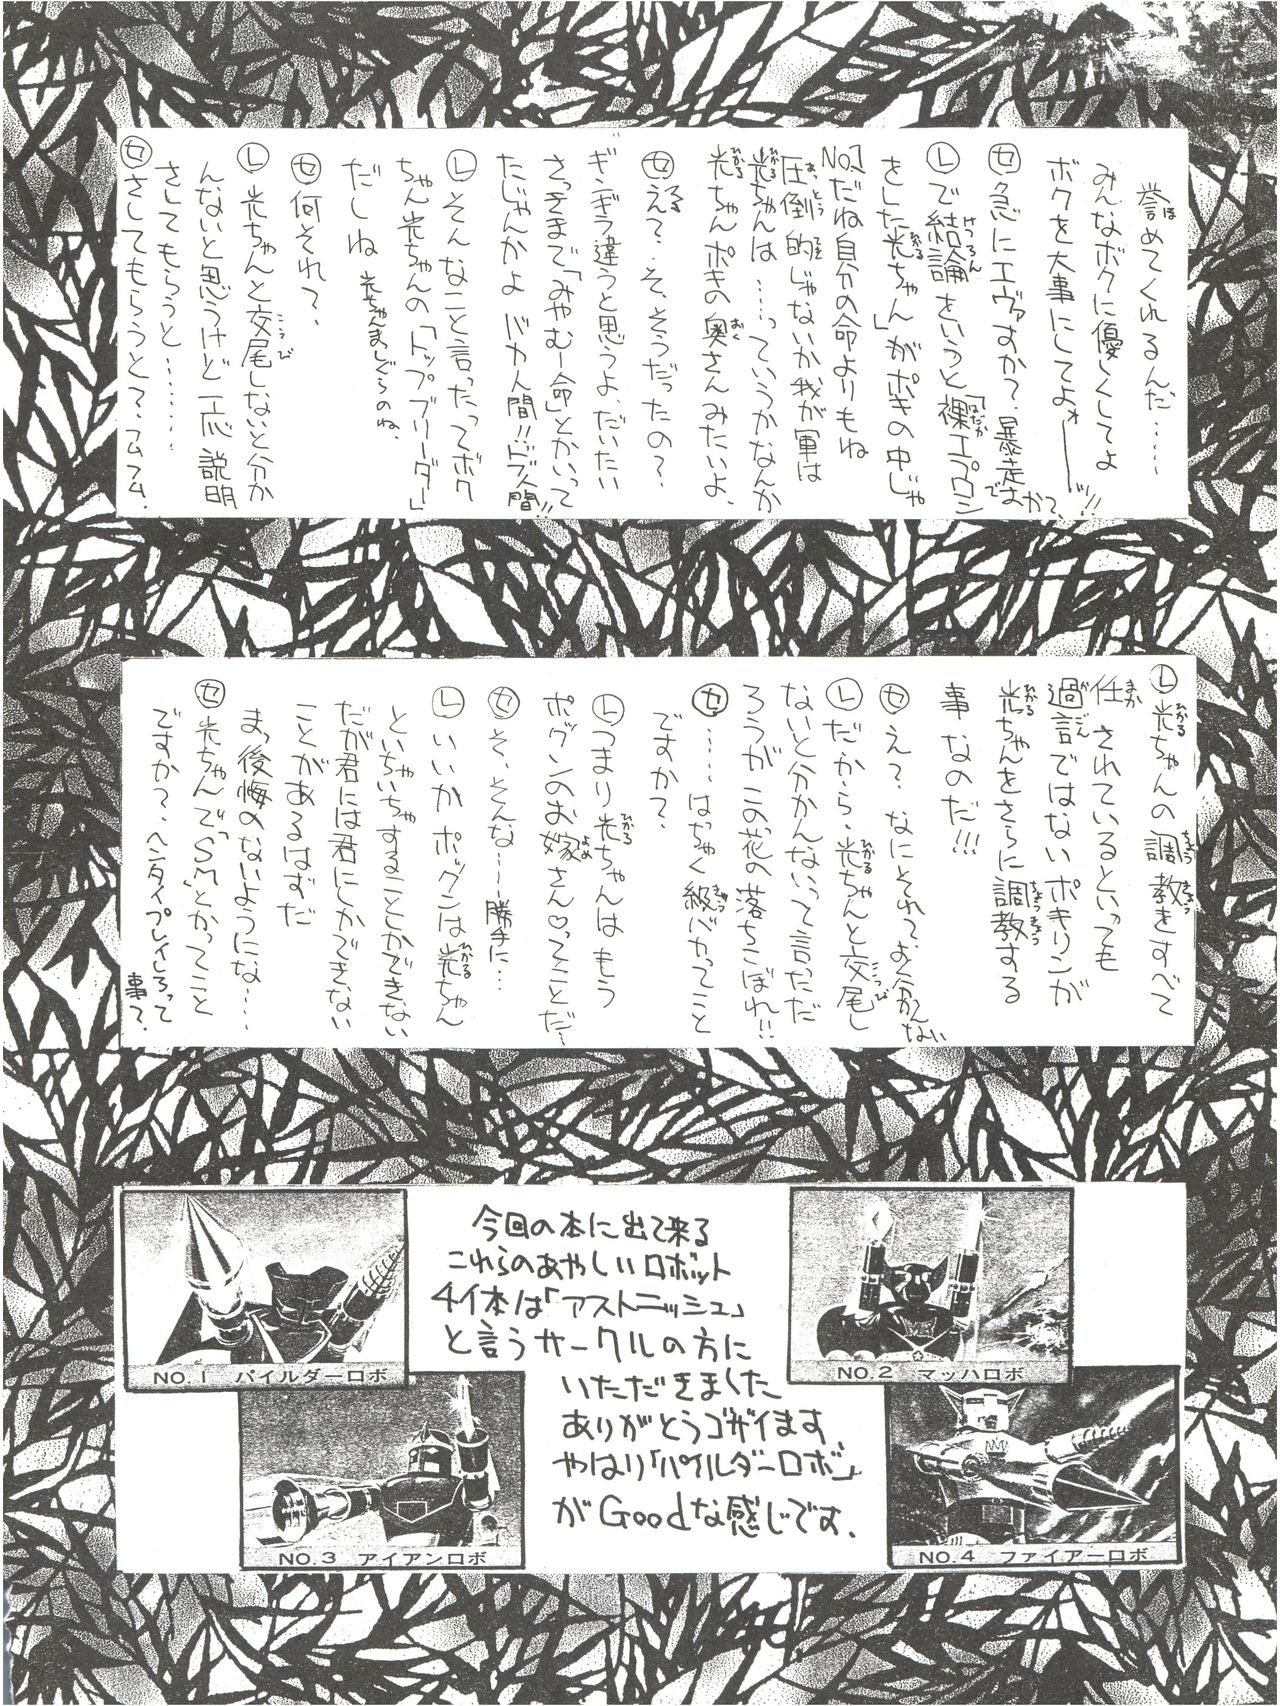 誉めてくれるんだ……
みんなボクに優しくしてよ
ボクを大事にしてよォーーッ!!
セ 急にエヴァすか?暴走すか?
レ で結論をいうと「裸エプロン
をした光ちゃん」がポキの中じゃ
NO.1だね自分の命よりもね
圧倒的じゃないか我が軍は
光ちゃんは……っていうかなんか
光ちゃんポキの奥さんみたいよ、
セ え?、そ、そうだったの?
ぎ、ぎう違うと思うよ、だいたい
さっきまで「みやむー命」とかいって
たじゃんかよ バカ人間!!ドブ人間!!
レ そんなこと言ったってボク
ちゃん光ちゃんの「トップブリーダー」
だしね 光ちゃんまっしぐらのね、
セ 何それ?、
レ 光ちゃんと交尾しないと分か
んないと思うけど一応説明
さしてもらうと………
セ さしてもらうと?、フムフム、
レ 光ちゃんの調教をすべて
任されているといっても
過言ではないポキリンが
光ちゃんをさらに調教する
事なのだ!!!
セ え?なにそれ?よく分かんない
レ だから、光ちゃんと交尾し
ないと分かんないって言っただ
ろうが この花の落ちこぼれ!!
セ ……はぢゃく級バカってこと
ですか?、
レ つまり光ちゃんはもう
ポックンのお嫁さん♡ってことだ〜
セ そ、そんな〜勝手に…
レ いいかポックンは光ちゃん
といちゃいちゃすることしかできない
だが君には君にしかできない
ことがあるはずだ
まっ後悔のないようにな……
セ 光ちゃんで"SM"とかってこと
ですか?、ヘンタイプレイしろって
事?、
今回の本に出て来る
これらのあやしいロボット
4体は「アストニッシュ」
と言うサークルの方に
いただきました
ありがとうゴザイます
やはり「パイルダーロボ」
がGoodな感じです、
NO.1 パイルダーロボ
NO.2 マッハロボ
NO.3 アイアンロボ
NO.4 ファイアーロボ